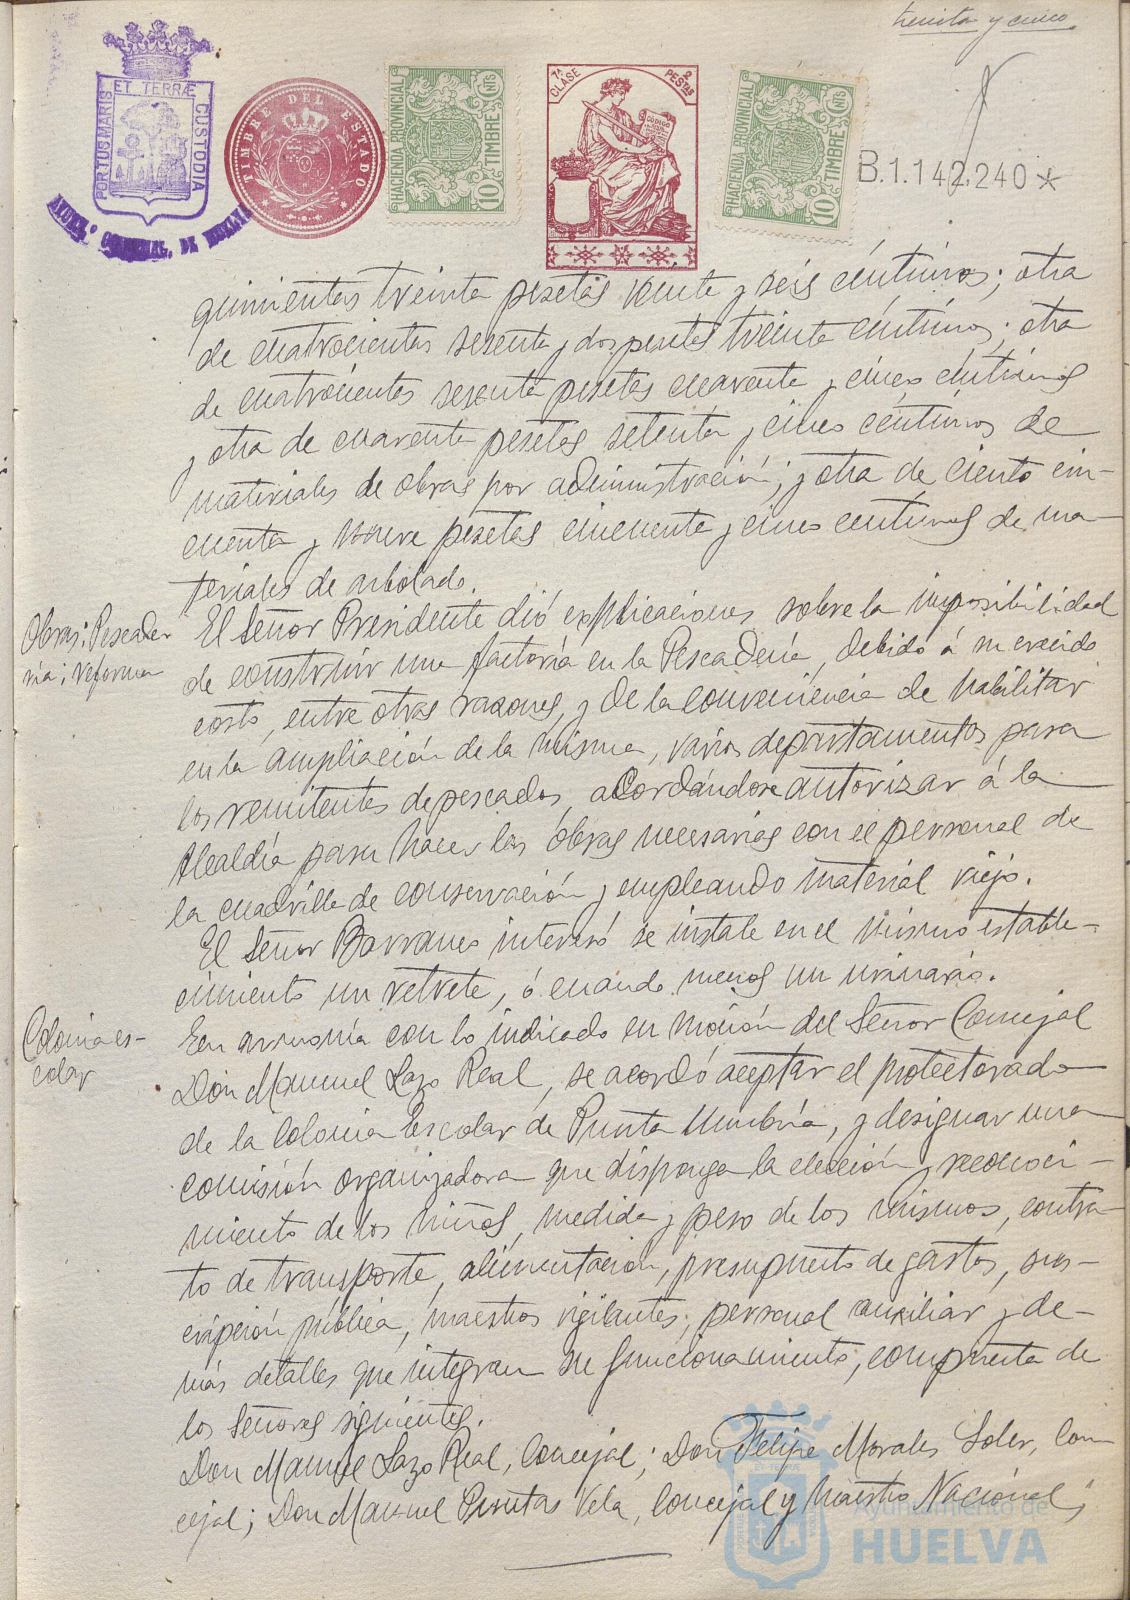 treinta y cinco
PORTUS MARIS ET TERRÆ CUSTODIA
AYUNT.º CONSTITUCIONAL DE HUELVA
TIMBRE DEL ESTADO
HACIENDA PROVINCIAL 10 CNTS TIMBRE
7ª CLASE 2 PESETAS
CÓDIGO
HACIENDA PROVINCIAL 10 CNTS TIMBRE
B.1.142.240*
quinientas treinta pesetas veinte y seis céntimos; otra
de cuatrocientas sesenta y dos pesetas treinta céntimos; otra
de cuatrocientas sesenta pesetas cuarenta y cinco céntimos
y otra de cuarenta pesetas setenta y cinco céntimos de
materiales de obras por administración; y otra de ciento cin-
cuenta y nueve pesetas cincuenta y cinco céntimos de ma-
teriales de arbolado.
Obras: Pescade-
ría; reforma
El Señor Presidente dió explicaciones sobre la imposibilidad
de construir una factoría en la Pescadería, debido á su crecido
costo, entre otras razones, y de la conveniencia de habilitar
en la ampliación de la misma, varios departamentos para
los remitentes de pescados, acordándose autorizar á la
Alcaldía para hacer las obras necesarias con el personal de
la cuadrilla de conservación y empleando material viejo.
El Señor Barranco interesó se instale en el mismo estable-
cimiento un retrete, ó cuando menos un urinario.
Colonia es-
colar
En armonía con lo indicado en moción del Señor Concejal
Don Manuel Lazo Real, se acordó aceptar el protectorado
de la Colonia Escolar de Punta Umbría, y designar una
comisión organizadora que disponga la elección y reconoci-
miento de los niños, medida y peso de los mismos, contra-
to de transporte, alimentación, presupuesto de gastos, sus-
cripción pública, maestros vigilantes, personal auxiliar y de-
más detalles que integran su funcionamiento, compuesta de
los Señores siguientes.
Don Manuel Lazo Real, Concejal; Don Felipe Morales Soler, Con-
cejal; Don Manuel Puntas Vela, Concejal y Maestro Nacional;
Ayuntamiento de
HUELVA